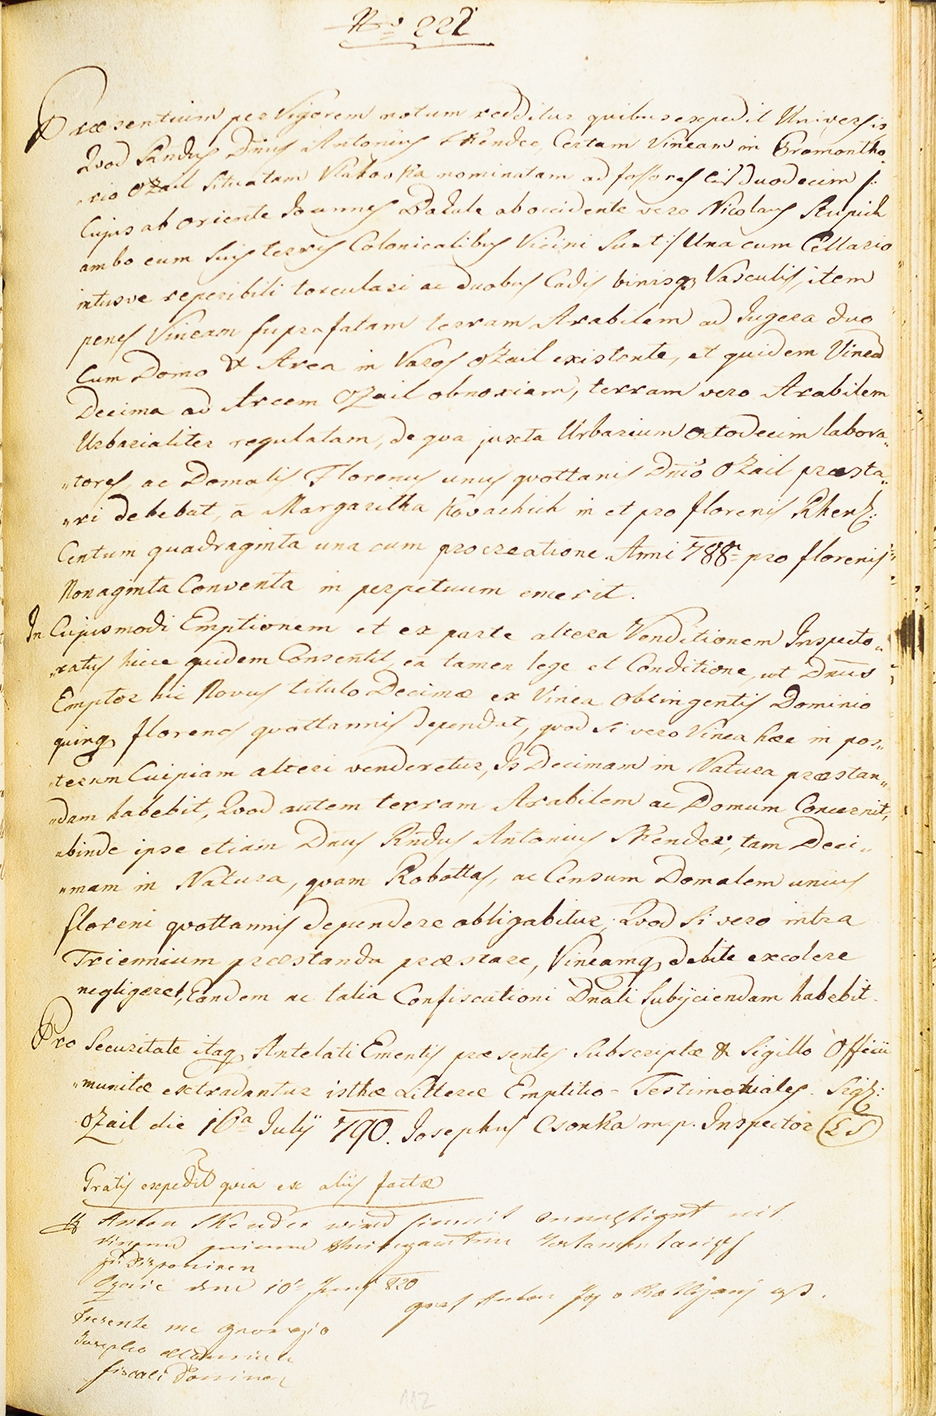 No 222
Præsentium per Vigorem notum redditur quibus expedit Universis
Quod Rndus Dnus Antonius Skender, Certam Vineam in Promontho,,
,,rio Ozail Situatam Vlahovka nominatam ad fossores cis duodecim /:
Cujus ab oriente Joannes Badule ab occidente vero Nicolaus Stupich
ambo cum Suis terris Colonicalibus Vicini Sunt :/ Una cum Cellario
intusve reperibili torculari ac duobus Cadis binisq Vasculis, item
penes Vineam supra fatam terram Arabilem ad Jugera duo
Cum Domo & Area in Varos Ozail existente, et quidem Vinea
Decima ad Arcem Ozail obnoxiam, terram vero Arabilem
Urbarialiter regulatam, de qva juxta Urbarium octodecim labora,,
,,tores, ac Domalis Florenus unus qvottanis Dnio Ozail præsta,,
,,ri debebat, a Margaritha Kovachich in et pro florenis Rhens:
Centum quadraginta una cum procreatione Anni 788 pro florenis
Nonaginta Conventa in perpetuum emerit.
In Cujusmodi Emptionem et ex parte altera Venditionem Inspecto,,
,,ratus hicce quidem Consentit, ea tamen lege et Conditione, ut Dnus
Emptor hic Novus titulo Decimæ ex Vinea obtingentis Dominio
quinq florenos qvottannis dependat, qvod si vero Vinea hæc in pos,,
,,terum Cuipiam alteri venderetur, Is Decimam in Natura præstan,,
,,dam habebit, Qvod autem terram Arabilem ac Domum Concernit,
abinde ipse etiam Dnus Rndus Antonius Skender, tam Deci,,
,,mam in Natura, qvam Robottas, ac Censum Domalem unius
floreni qvottannis dependere obligabitur; Qvod Si vero intra
Triennium præstanda præstare, Vineamq debite excolere
negligeret, Eandem ac talia Confiscationi Dnali Subijciendam habebit.
Pro Securitate itaq Antelati Ementis præsentes Subscriptæ & Sigillo Officii
,,munitæ extradantur isthæ Litteræ Emptitio-Testimoniales. Sigl:
Ozail die 16a Julij 790. Josephus Csonka mp. Inspector LS
Gratis expedit qvia ex aliis factæ
Anton Skender wird hiemit
Ozail den 10 Juny 820
graf Anton Bathyani mp.
Presente me Georgio
Josepho
fiscali Dominali
112